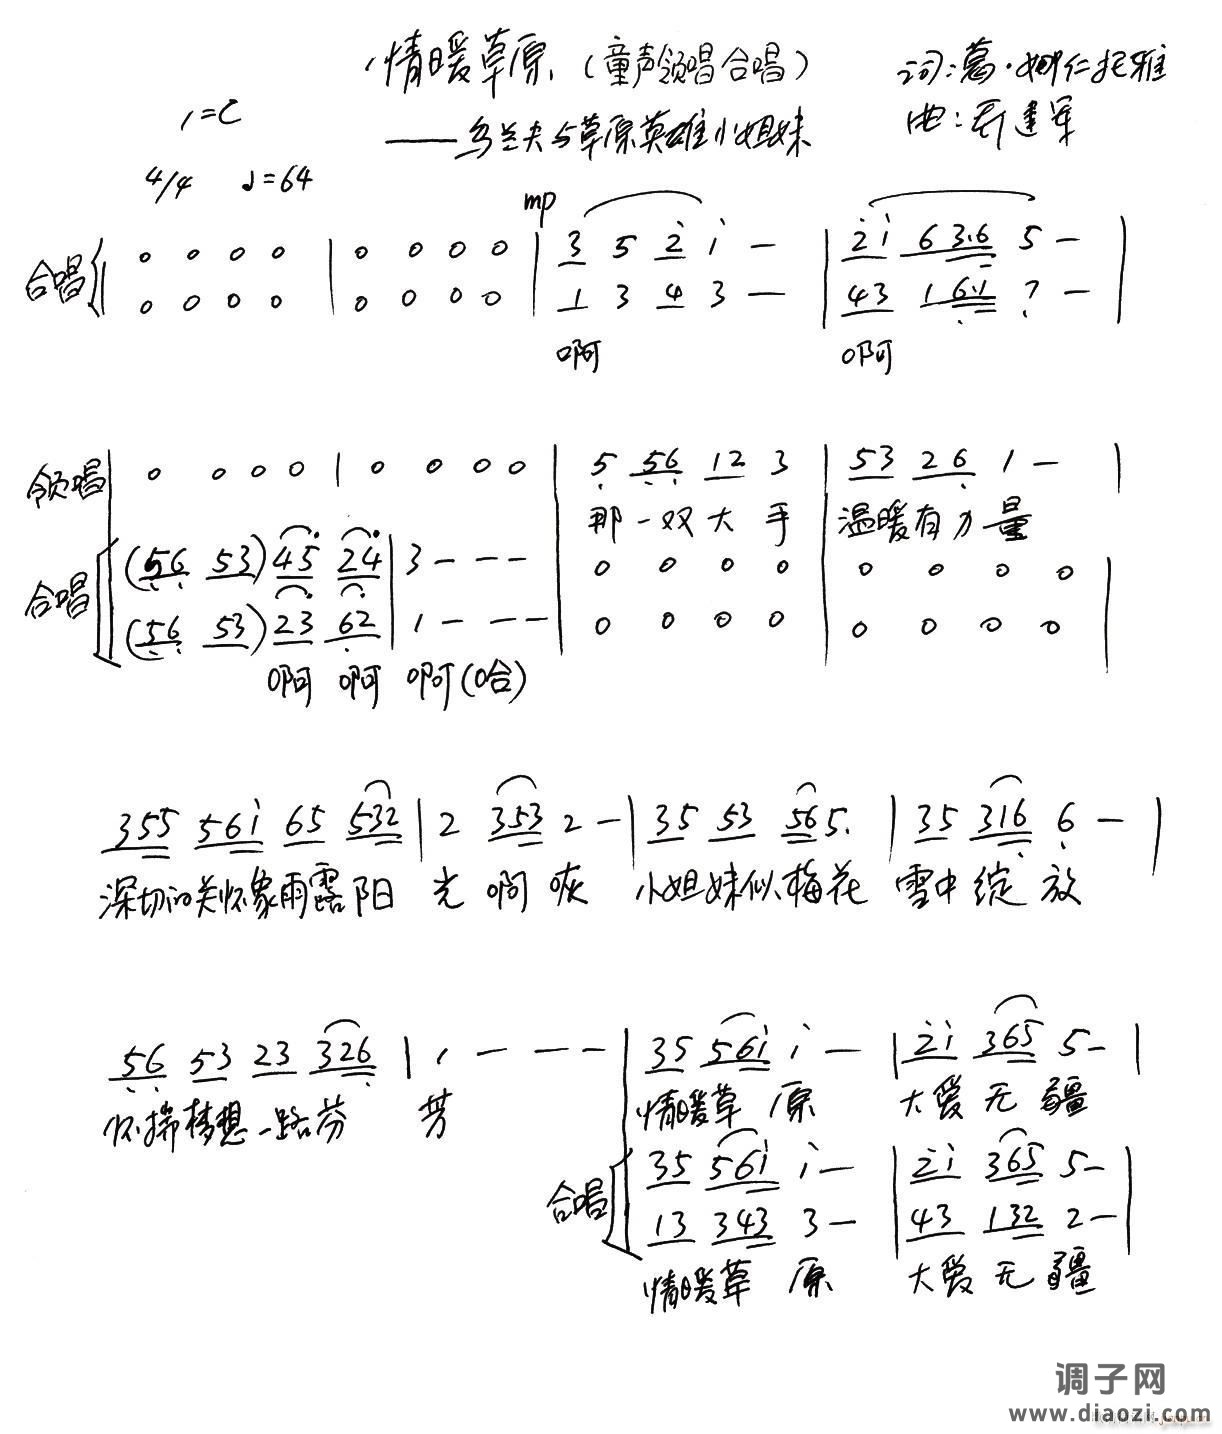 情暖草原 (童声领唱合唱)
词:葛·娜仁托雅
1=C
——乌兰夫与草原英雄小姐妹
曲: 建军
4/4 ♩=64
mp
合唱 0 0 0 0 | 0 0 0 0 | 3 5 2̇ 1̇ — | 2̇1̇ 6 3.6 5 — |
0 0 0 0 | 0 0 0 0 | 1 3 4 3 — | 43 1 6.1 7 — |
啊 啊
领唱 0 0 0 0 | 0 0 0 0 | 5 56 12 3 | 53 26 1 — |
那一双大手 温暖有力量
合唱 (56 53) 45 24 | 3 — — — | 0 0 0 0 | 0 0 0 0 |
(56 53) 23 62 | 1 — — — | 0 0 0 0 | 0 0 0 0 |
啊 啊 啊(哈)
355 561̇ 65 532 | 2 353 2 — | 35 53 56 5. | 35 316 6 — |
深切的关怀象雨露阳 光 啊 咴 小姐妹似梅花 雪中绽 放
56 53 23 326 | 1 — — — | 35 561̇ 1̇ — | 2̇1̇ 365 5 — |
怀揣梦想一路芬 芳 情暖草 原 大爱无 疆
合唱 35 561̇ 1̇ — | 2̇1̇ 365 5 — |
13 343 3 — | 43 132 2 — |
情暖草 原 大爱无 疆
调子网
www.diaozi.com